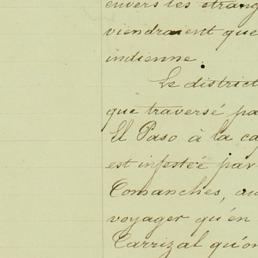 envers les étrang
viendraient que
indienne.
Le district
que traversé pa
El Paso à la ca
est infesteé par
Comanches, au
voyager qu'en
Carrizal qu'on